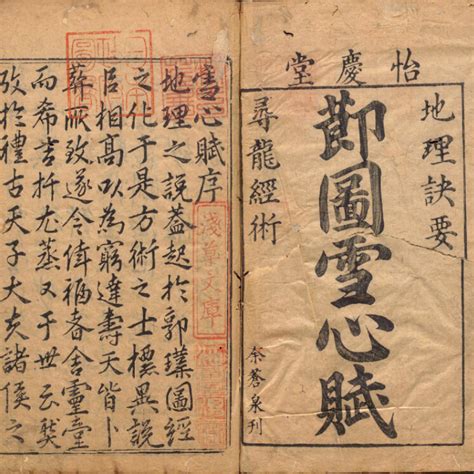 怡慶堂
地理訣要
莭圖雪心賦
尋龍經術
余蒼泉刊
雪心賦序
地理之說蓋起於郭璞圖經
之化于是方術之士標異說
相高以為窮達壽夭皆卜
葬所致遂令福者舍靈
而希吉扦尤又于世云
攷於禮古天子大夫諸侯之
淺草文庫